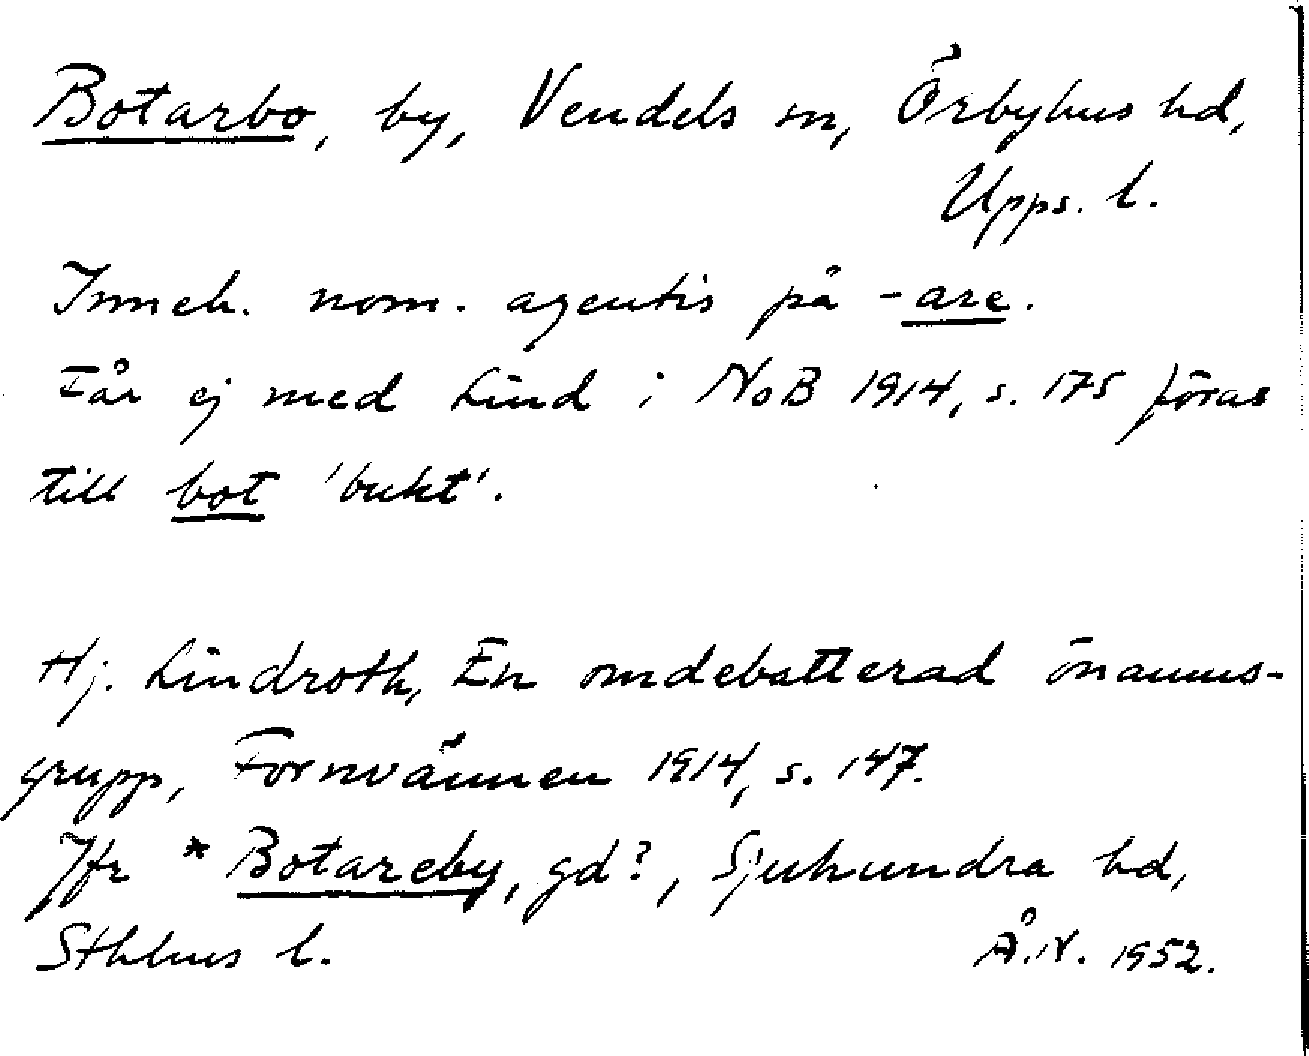 Botarbo, by, Vendels sn, Örbyhus hd,
Upps. l.
Inneh. nom. agentis på -are.
Får ej med Lind i NoB 1914, s. 175 föras
till bot 'bukt'.
Hj. Lindroth, En omdebatterad önamns-
grupp, Fornvännen 1914, s. 147.
Jfr *Botareby, gd?, Sjuhundra hd,
Sthlms l. Å.N. 1952.